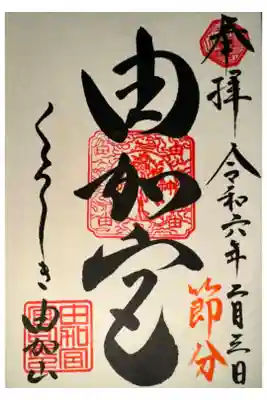 奉拝
令和六年二月三日
節分
由加宮
くらしき
由加山